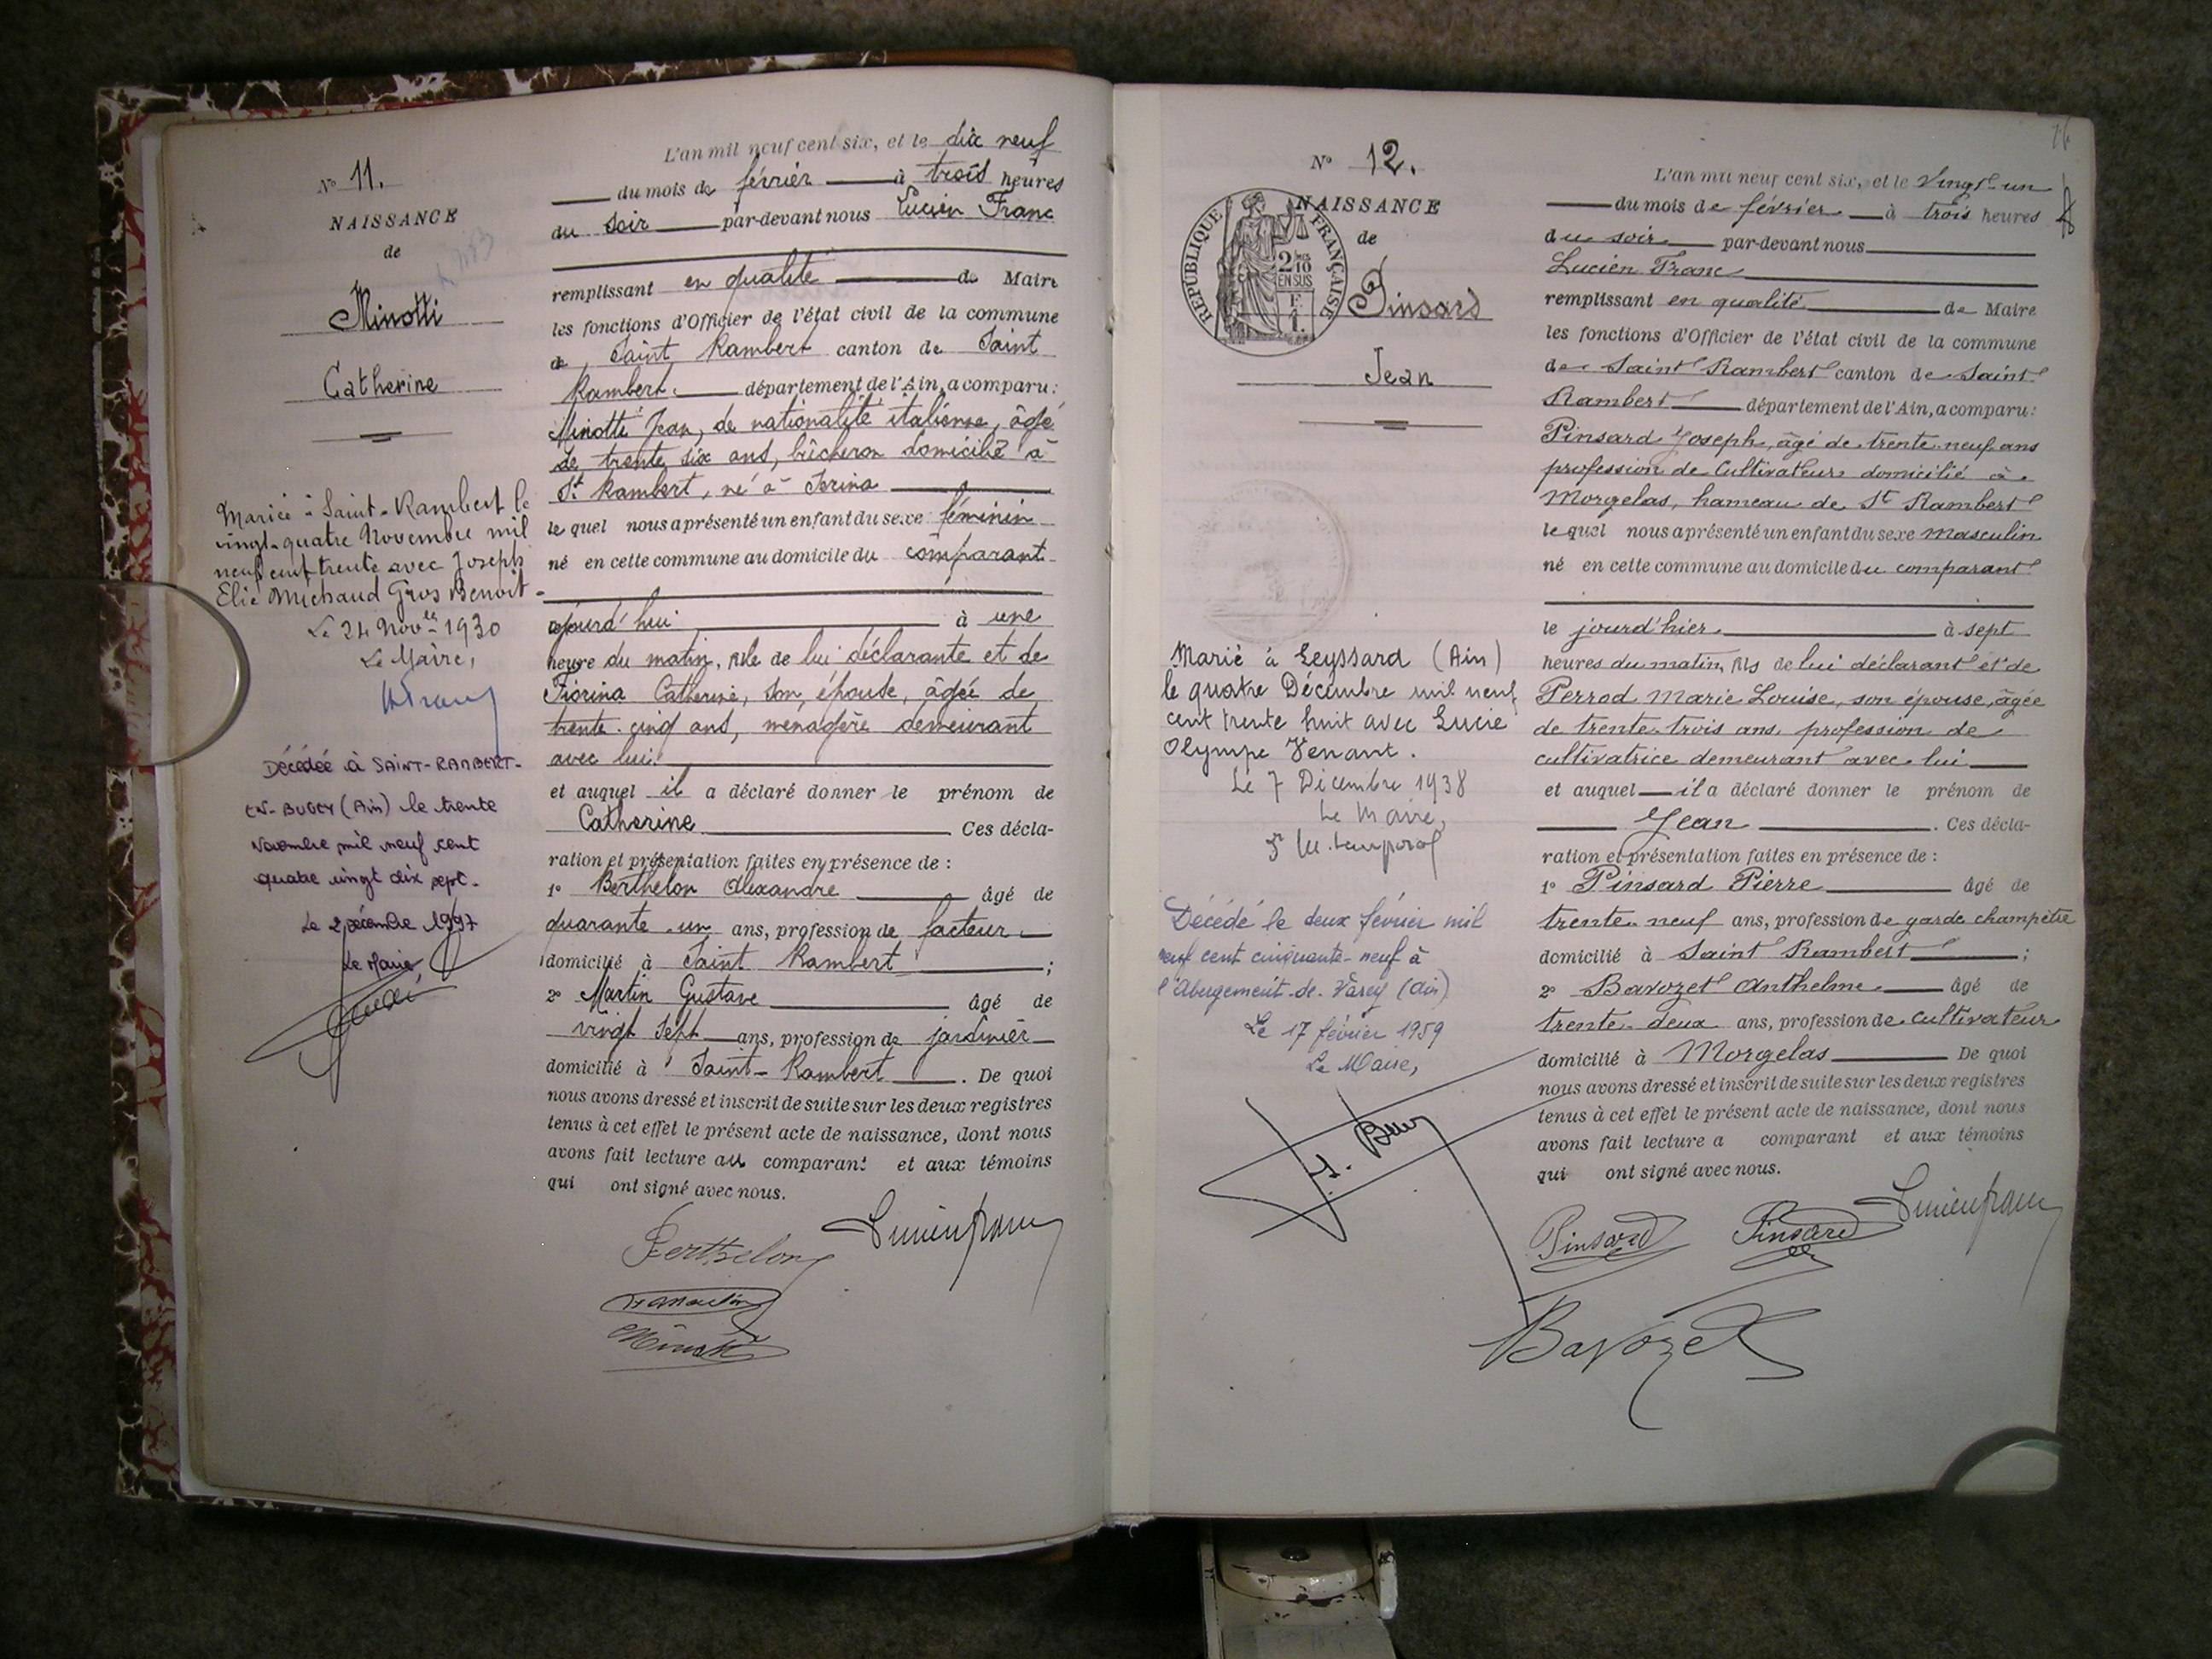 N° 11.
NAISSANCE
de
Minotti
Catherine
Mariée à Saint-Rambert le
vingt-quatre Novembre mil
neuf cent trente avec Joseph
Elie Michaud Gros Benoit.
Le 24 Nov.bre 1930
Le Maire,
Décédée à SAINT-RAMBERT-
EN-BUGEY (Ain) le trente
Novembre mil neuf cent
quatre vingt dix sept.
Le 2 décembre 1997
Le Maire,
L'an mil neuf cent six, et le dix neuf
du mois de février à trois heures
du soir par-devant nous Lucien Franc
remplissant en qualité de Maire
les fonctions d'Officier de l'état civil de la commune
de Saint Rambert canton de Saint
Rambert département de l'Ain, a comparu:
Minotti Jean, de nationalité italienne, âgé
de trente six ans, bûcheron domicilié à
St Rambert, né à
le quel nous a présenté un enfant du sexe féminin
né en cette commune au domicile du comparant
à une
heure du matin, fille de lui déclarante et de
Fiorina Catherine, son épouse, âgée de
trente cinq ans, ménagère demeurant
avec lui.
et auquel il a déclaré donner le prénom de
Catherine Ces décla-
ration et présentation faites en présence de :
1° Berthelon Alexandre âgé de
quarante un ans, profession de facteur
domicilié à Saint Rambert ;
2° Martin Gustave âgé de
vingt sept ans, profession de jardinier
domicilié à Saint-Rambert . De quoi
nous avons dressé et inscrit de suite sur les deux registres
tenus à cet effet le présent acte de naissance, dont nous
avons fait lecture au comparant et aux témoins
qui ont signé avec nous.
Berthelon Lucien franc
Minotti
N° 12.
RÉPUBLIQUE FRANÇAISE
2/10
EN SUS
NAISSANCE
de
Pinsard
Jean
Marié à Leyssard (Ain)
le quatre Décembre mil neuf
cent trente huit avec Lucie
Olympe Venant.
Le 7 Décembre 1938
Le Maire,
Décédé le deux février mil
neuf cent cinquante-neuf à
l'Abergement-de-Varey (Ain)
Le 17 février 1959
Le Maire,
L'an mil neuf cent six, et le vingt un
du mois de février à trois heures
du soir par-devant nous
Lucien Franc
remplissant en qualité de Maire
les fonctions d'Officier de l'état civil de la commune
de Saint Rambert canton de Saint
Rambert département de l'Ain, a comparu:
Pinsard Joseph, âgé de trente-neuf ans
profession de Cultivateur domicilié à
Morgelas, hameau de St Rambert
le quel nous a présenté un enfant du sexe masculin
né en cette commune au domicile du comparant
le jourd'hier à sept
heures du matin, fils de lui déclarant et de
Perrod Marie Louise, son épouse, âgée
de trente-trois ans, profession de
cultivatrice demeurant avec lui
et auquel il a déclaré donner le prénom de
Jean . Ces décla-
ration et présentation faites en présence de :
1° Pinsard Pierre âgé de
trente-neuf ans, profession de garde champêtre
domicilié à Saint Rambert ;
2° Bavozet Anthelme âgé de
trente-deux ans, profession de cultivateur
domicilié à Morgelas De quoi
nous avons dressé et inscrit de suite sur les deux registres
tenus à cet effet le présent acte de naissance, dont nous
avons fait lecture a comparant et aux témoins
qui ont signé avec nous.
Pinsard Pinsard Lucien franc
Bavozet